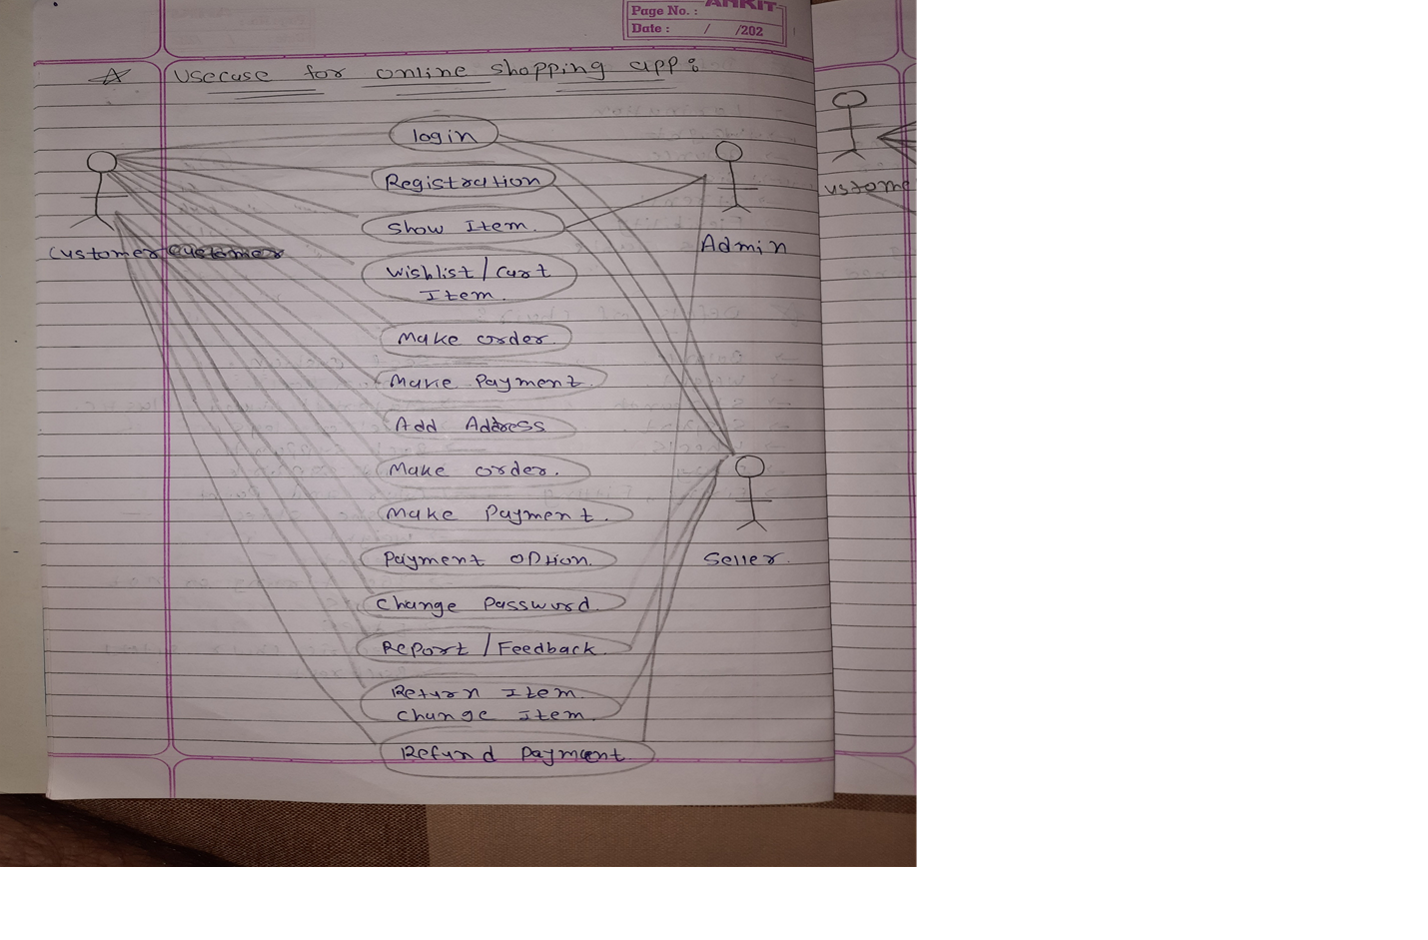 ANKIT
Page No. :
Date : / /202
Usecase for online shopping app :
login
Registration
Show Item.
Wishlist / Cart
Item.
Make order.
Make Payment.
Add Address
Make order.
Make Payment.
Payment option.
Change Password.
Report / Feedback.
Return Item.
Change Item.
Refund Payment.
Customer Customer
Admin
Seller.
ustome